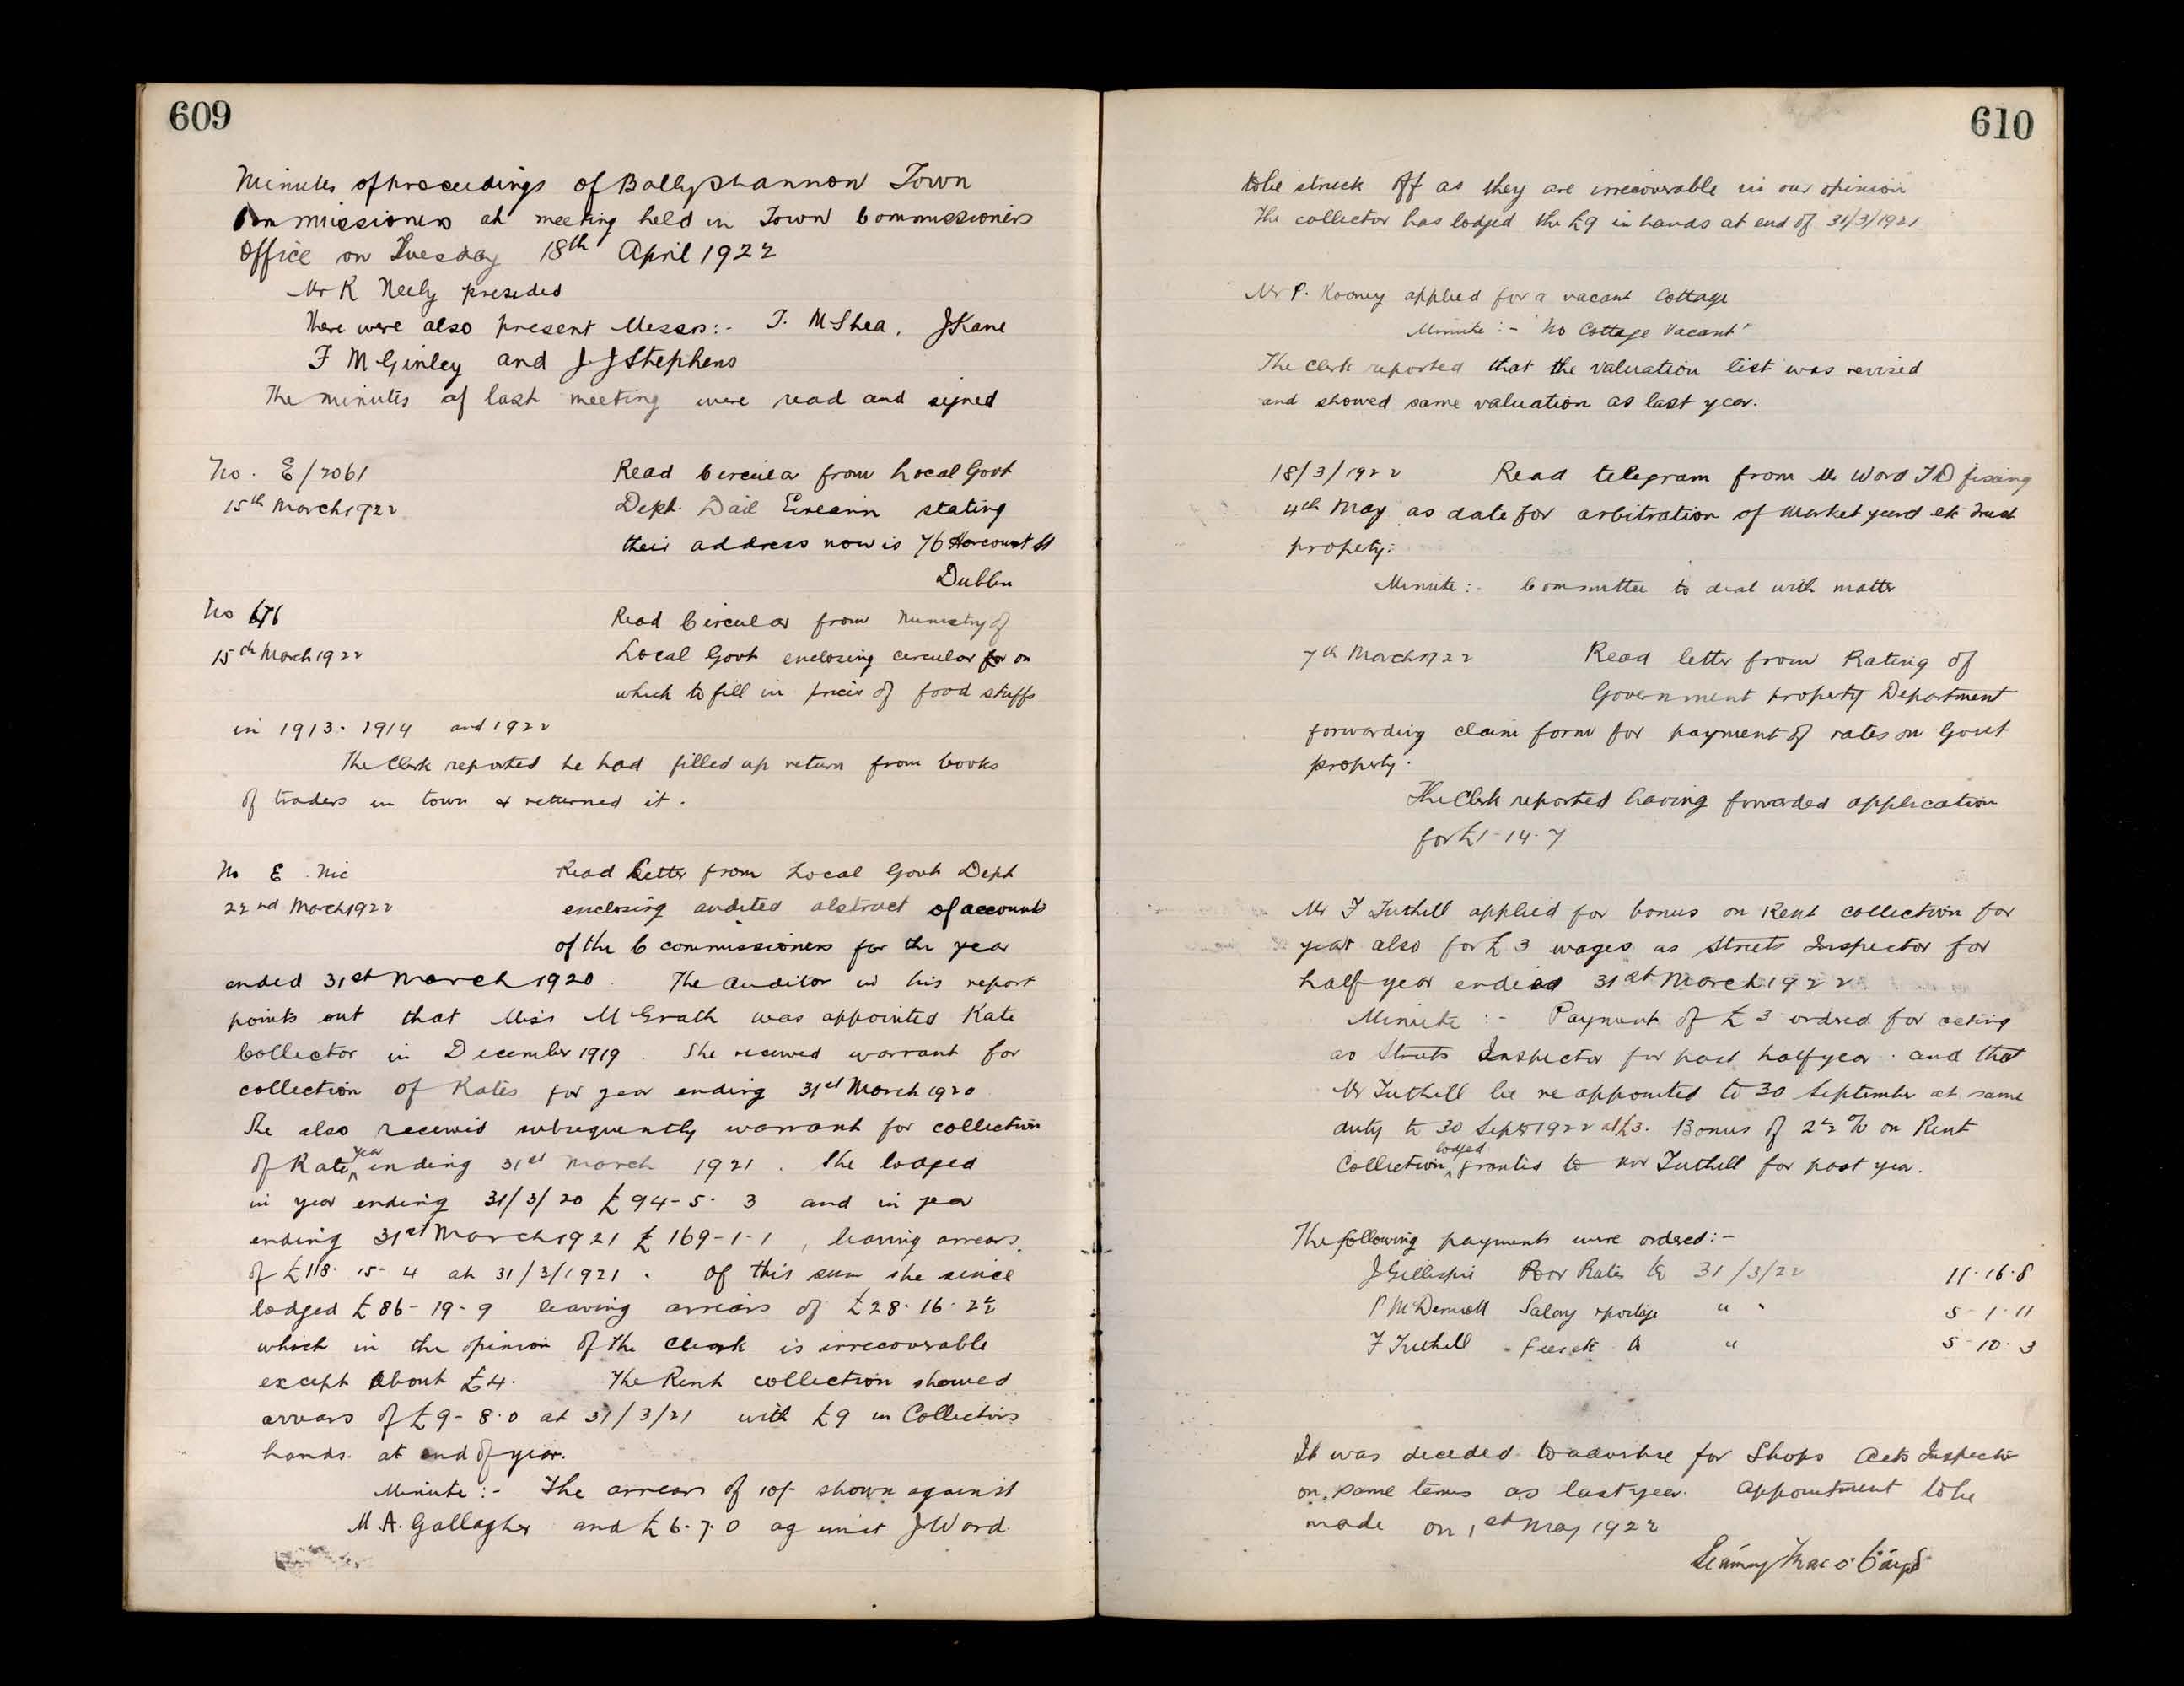 609
Minutes of proceedings of Ballyshannon Town
Commissioners at meeting held in Town Commissioners
Office on Tuesday 18th April 1922
Mr R Neely presided
There were also present Messrs:- T. McShea, J Kane
F McGinley and J J Stephens
The minutes of last meeting were read and signed
No. E/2061 Read Circular from Local Govt
15th March 1922 Dept. Dail Eireann stating
their address now is 76 Harcourt St
Dublin
No 676 Read Circular from Ministry of
15th March 1922 Local Govt enclosing circular for on
which to fill in prices of food stuffs
in 1913-1914 and 1922
The Clerk reported he had filled up return from books
of traders in town & returned it.
No E Nic Read Letter from Local Govt Dept
22nd March 1922 enclosing audited abstract of accounts
of the C commissioners for the year
ended 31st March 1920. The Auditor in his report
points out that Miss McGrath was appointed Rate
Collector in December 1919. She received warrant for
collection of Rates for year ending 31st March 1920
She also received subsequently warrant for collection
of Rate year ending 31st March 1921. She lodged
in year ending 31/3/20 £94-5-3 and in year
ending 31st March 1921 £169-1-1, leaving arrears
of £118-15-4 at 31/3/1921. Of this sum she since
lodged £86-19-9 leaving arrears of £28-16-2½
which in the opinion of the Clerk is irrecoverable
except about £4. The Rent collection showed
arrears of £9-8-0 at 31/3/21 with £9 in Collectors
hands at end of year.
Minute:- The arrears of 10/- shown against
M.A. Gallagher and £6-7-0 against J Ward
610
to be struck off as they are irrecoverable in our opinion
The collector has lodged the £9 in hands at end of 31/3/1921
Mr P. Rooney applied for a vacant Cottage
Minute:- "No Cottage Vacant"
The Clerk reported that the valuation list was revised
and showed same valuation as last year.
18/3/1922 Read telegram from Mr Ward TD fixing
4th May as date for arbitration of Market yard etc Trust
propety.
Minute:- Committee to deal with matter
7th March 1922 Read letter from Rating of
Government property Department
forwarding claim form for payment of rates on Govt
property.
The Clerk reported having forwarded application
for £1-14-7
Mr F Tuthill applied for bonus on Rent collection for
year also for £3 wages as Streets Inspector for
half year ended 31st March 1922
Minute:- Payment of £3 ordred for acting
as Streets Inspector for past half year. and that
Mr Tuthill be re appointed to 30 September at same
duty to 30 Septr 1922 at £3. Bonus of 2½ % on Rent
Collection lodged granted to Mr Tuthill for past year.
The following payments were ordered:-
J Gillespie Poor Rates to 31/3/22 11-16-8
P McDermott Salary & postage " " 5-1-11
F Tuthill Fees etc to " 5-10-3
It was decided to advertise for Shops Acts Inspector
on same terms as last year. Appointment to be
made on 1st May 1922